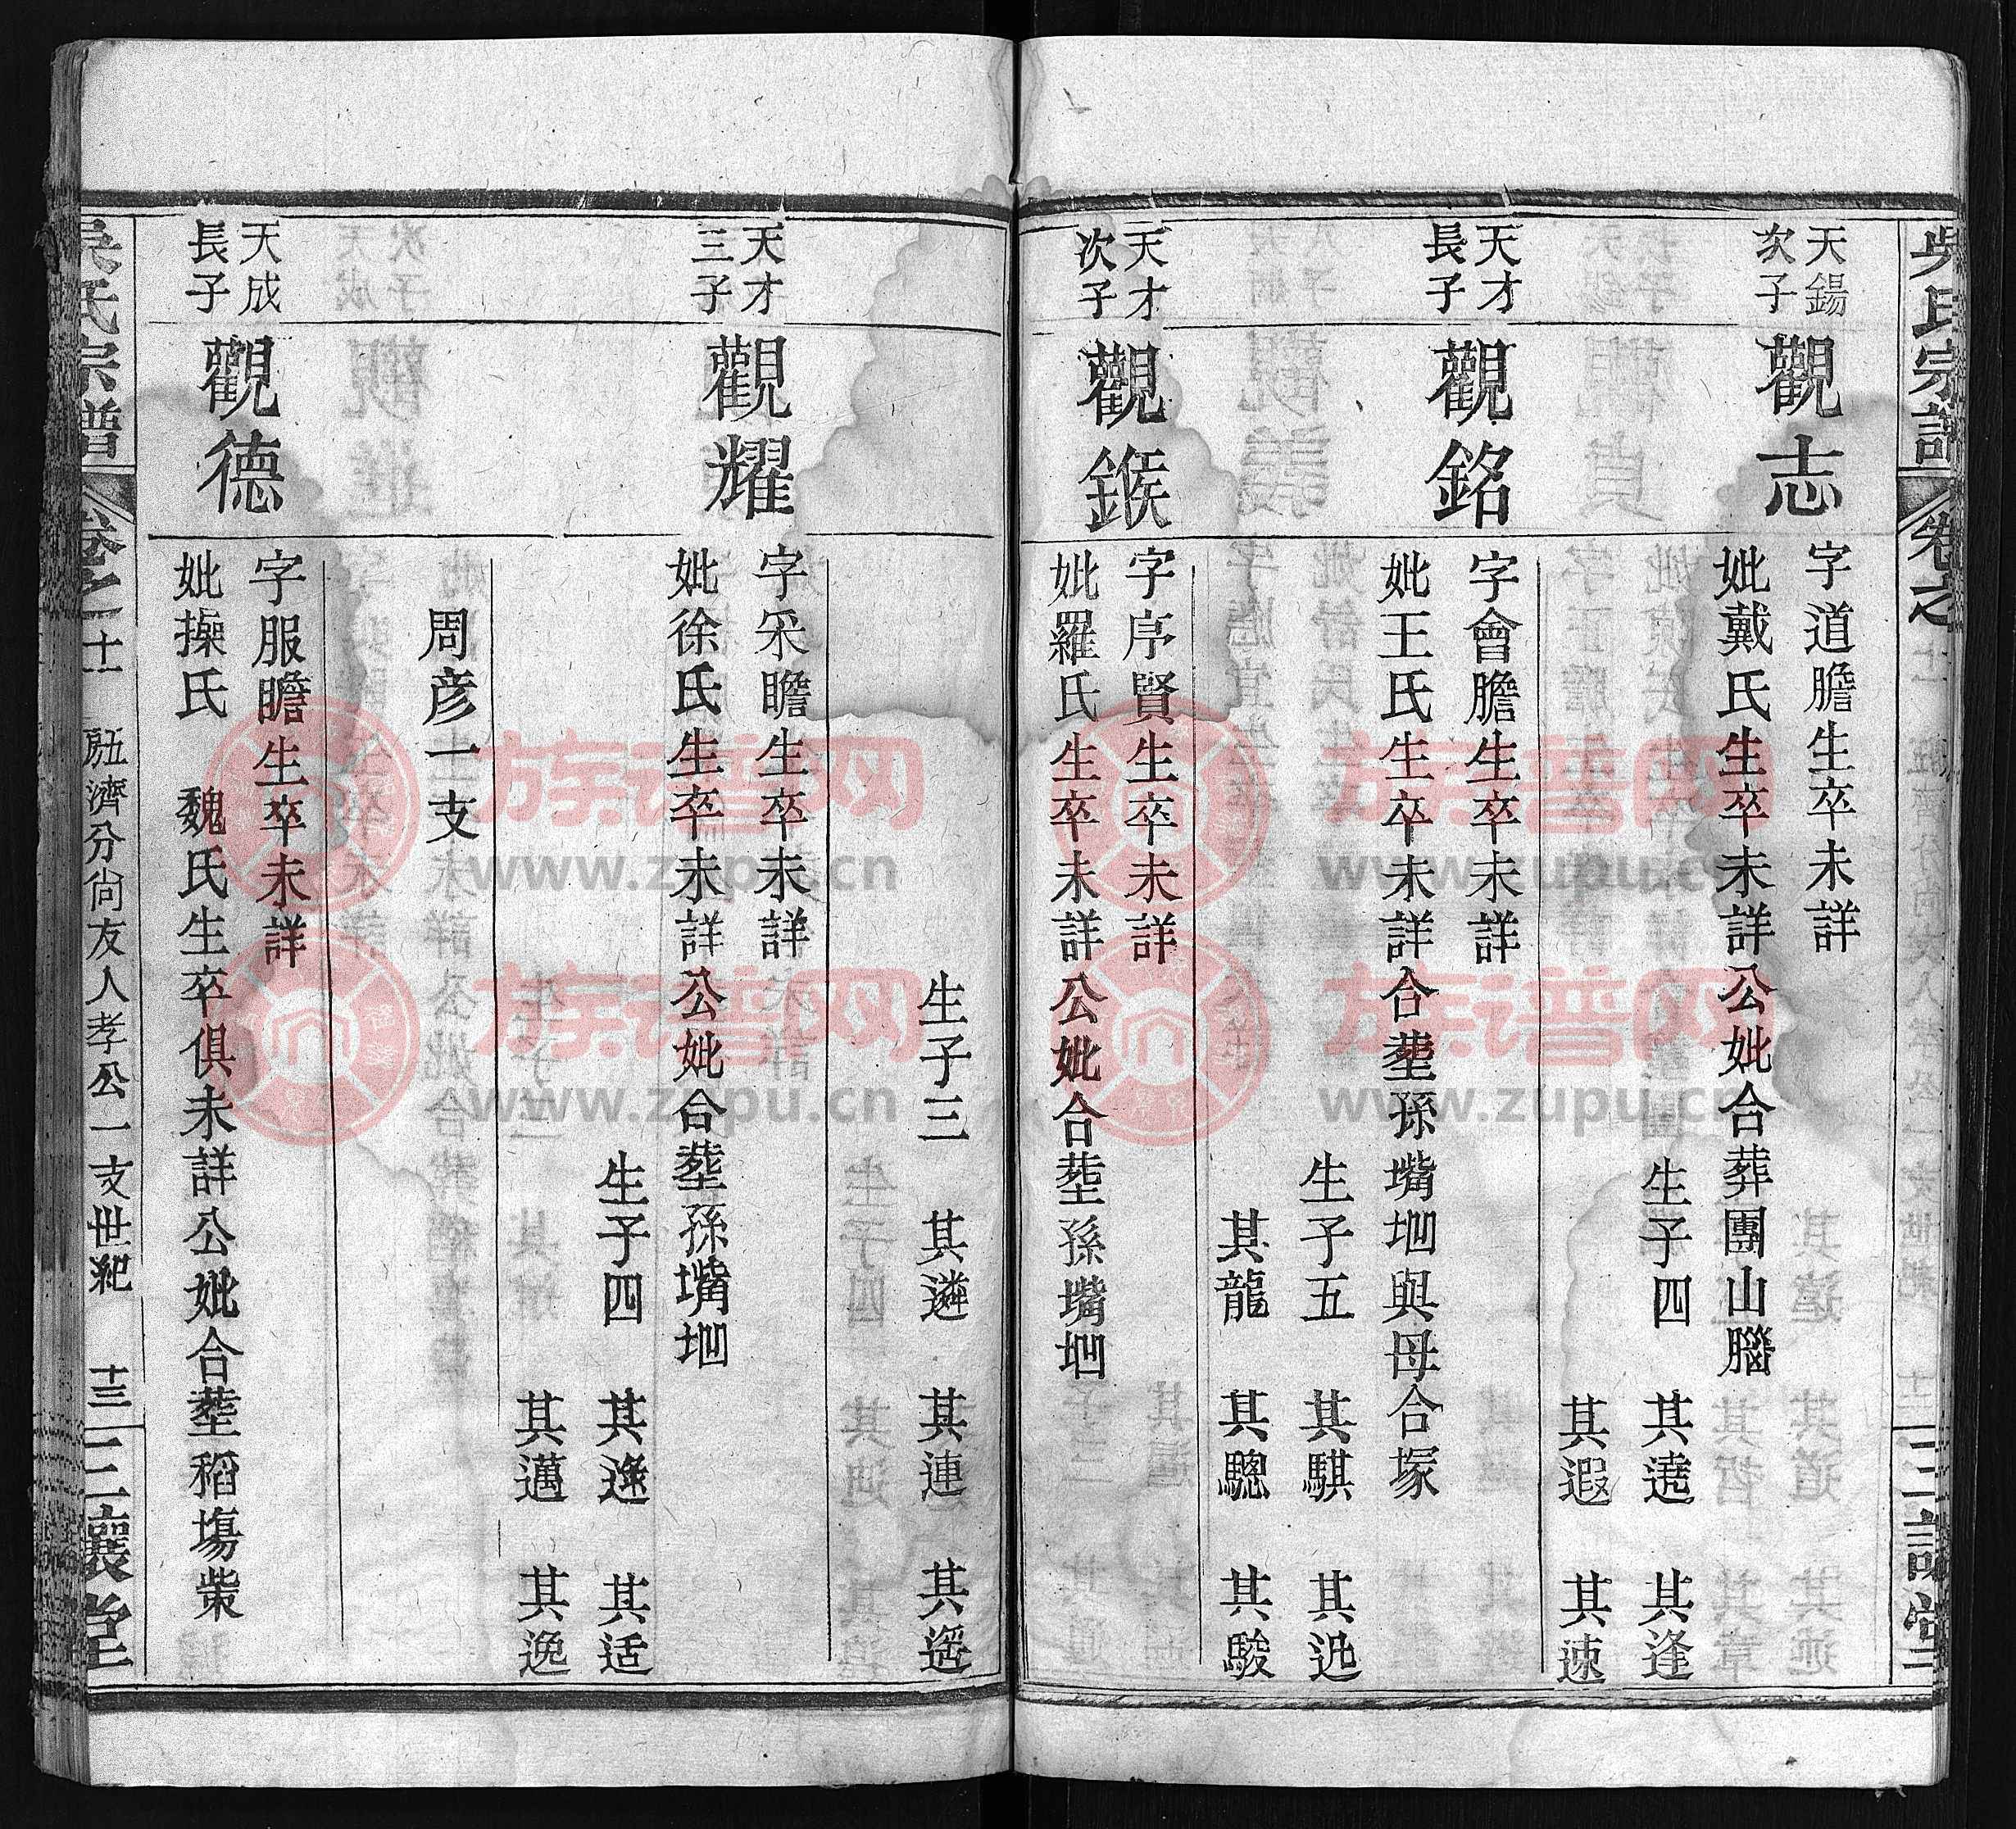 吳氏宗譜
卷之
三讓堂
天錫
次子
觀志
字道膽生卒未詳
妣戴氏生卒未詳公妣合葬團山腦
生子四 其逵 其逢
其遐 其速
天才
長子
觀銘
字會膽生卒未詳
妣王氏生卒未詳合塟孫嘴堌與母合塚
生子五 其騏 其𨒪
其龍 其驄 其駿
天才
次子
觀鍭
字序賢生卒未詳
妣羅氏生卒未詳公妣合塟孫嘴堌
生子三 其遴 其連 其遥
天才
三子
觀耀
字采瞻生卒未詳
妣徐氏生卒未詳公妣合塟孫嘴堌
生子四 其逢 其适
其邁 其逸
周彦一支
天成
長子
觀德
字服瞻生卒未詳
妣操氏 魏氏生卒俱未詳公妣合塟稻塲柴
吳氏宗譜
卷之十一 五濟分尙友人孝公一支世紀 十三
三讓堂
族谱网
www.zupu.cn
族谱网
www.zupu.cn
族谱网
www.zupu.cn
族谱网
www.zupu.cn